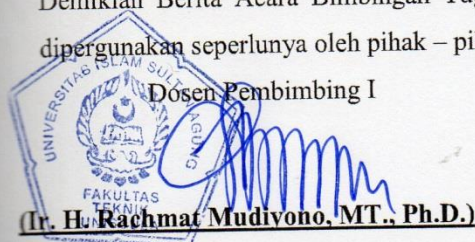 Demikian Berita Acara Bimbingan Tug
dipergunakan seperlunya oleh pihak – pi
Dosen Pembimbing I
UNIVERSITAS ISLAM SULTAN AGUNG
FAKULTAS
TEKNIK
(Ir. H. Rachmat Mudiyono, MT., Ph.D.)